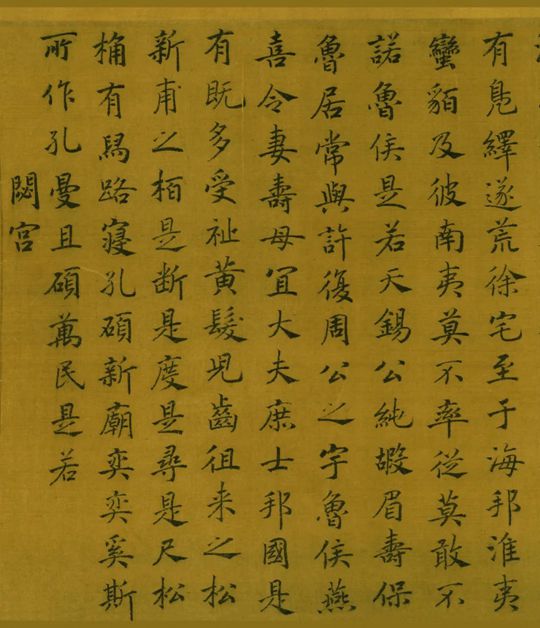 有鳧繹遂荒徐宅至于海邦淮夷
蠻貊及彼南夷莫不率從莫敢不
諾魯侯是若天錫公純嘏眉壽保
魯居常與許復周公之宇魯侯燕
喜令妻壽母宜大夫庶士邦國是
有既多受祉黃髮兒齒徂来之松
新甫之栢是断是度是尋是尺松
桷有舄路寢孔碩新廟奕奕奚斯
所作孔曼且碩萬民是若
閟宮